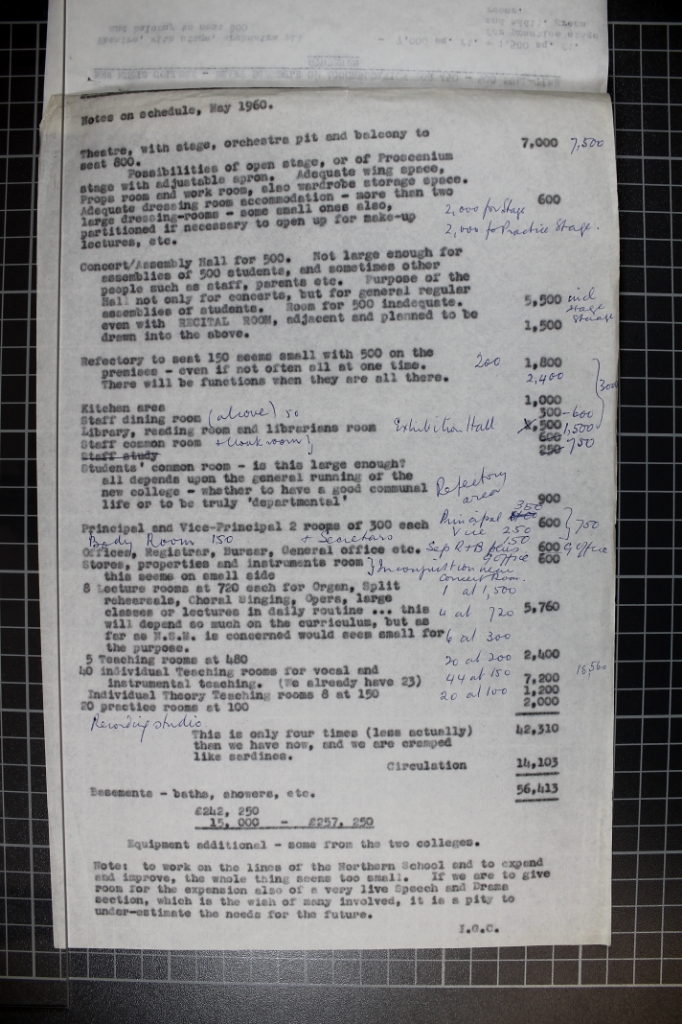 Notes on schedule, May 1960.
Theatre, with stage, orchestra pit and balcony to 7,000 7,500
seat 800.
Possibilities of open stage, or of Proscenium
stage with adjustable apron. Adequate wing space,
Props room and work room, also wardrobe storage space.
Adequate dressing room accommodation - more than two 600
large dressing-rooms - some small ones also, 2,000 for Stage
partitioned if necessary to open up for make-up
lectures, etc. 2,000 for Practice Stage.
Concert/Assembly Hall for 500. Not large enough for
assemblies of 500 students, and sometimes other
people such as staff, parents etc. Purpose of the
Hall not only for concerts, but for general regular
assemblies of students. Room for 500 inadequate. 5,500 incl
stage
Storage
even with RECITAL ROOM, adjacent and planned to be 1,500
drawn into the above.
Refectory to seat 150 seems small with 500 on the 200 1,800
premises - even if not often all at one time. 2,400
There will be functions when they are all there.
Kitchen area 1,000
Staff dining room (above) 50 300-600
Library, reading room and librarians room Exhibition Hall ,500 1,500
Staff common room + cloakroom} 600
Staff study 250 - 750
Students' common room - is this large enough?
all depends upon the general running of the
new college - whether to have a good communal Refectory
life or to be truly 'departmental' area 900
350
Principal and Vice-Principal 2 rooms of 300 each Principal 600 } 750
Vice 250
Body Room 150 + Secretary 150
Offices, Registrar, Bursar, General office etc. Sep R+B plus 600 G Office
G office
Stores, properties and instruments room } In conjunction near 600
this seems on small side Concert Room.
8 Lecture rooms at 720 each for Organ, Split 1 at 1,500
rehearsals, Choral Singing, Opera, large
classes or lectures in daily routine ... this 4 at 720 5,760
will depend so much on the curriculum, but as
far as N.S.M. is concerned would seem small for 6 at 300
the purpose.
5 Teaching rooms at 480 20 at 200 2,400
40 individual Teaching rooms for vocal and 18,560
instrumental teaching. (We already have 23) 44 at 150 7,200
Individual Theory Teaching rooms 8 at 150 1,200
20 practice rooms at 100 20 at 100 2,000
Recording studio
This is only four times (less actually) 42,310
than we have now, and we are cramped
like sardines.
Circulation 14,103
Basements - baths, showers, etc. 56,413
£242, 250
15, 000 - £257, 250
Equipment additional - some from the two colleges.
Note: to work on the lines of the Northern School and to expand
and improve, the whole thing seems too small. If we are to give
room for the expansion also of a very live Speech and Drama
section, which is the wish of many involved, it is a pity to
under-estimate the needs for the future.
I.G.C.